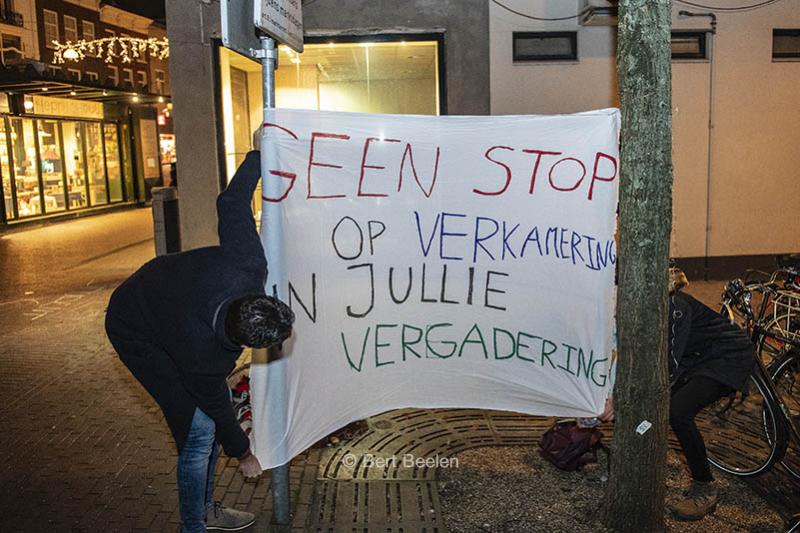 GEEN STOP
OP VERKAMERING
IN JULLIE
VERGADERING!
© Bert Beelen